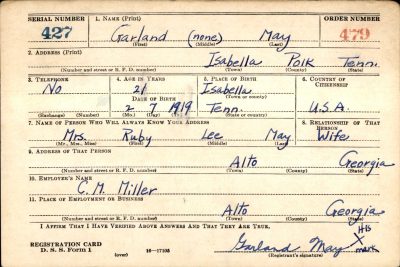 SERIAL NUMBER 1. NAME (Print) ORDER NUMBER
427 Garland (none) May 479
(First) (Middle) (Last)
2. ADDRESS (Print)
Isabella Polk Tenn.
(Number and street or R. F. D. number) (Town) (County) (State)
3. TELEPHONE 4. AGE IN YEARS 5. PLACE OF BIRTH 6. COUNTRY OF CITIZENSHIP
No 21 Isabella
DATE OF BIRTH (Town or county)
2 7 1919 Tenn. U.S.A.
(Exchange) (Number) (Mo.) (Day) (Yr.) (State or country)
7. NAME OF PERSON WHO WILL ALWAYS KNOW YOUR ADDRESS 8. RELATIONSHIP OF THAT PERSON
Mrs. Ruby Lee May Wife
(Mr., Mrs., Miss) (First) (Middle) (Last)
9. ADDRESS OF THAT PERSON
Alto Georgia
(Number and street or R. F. D. number) (Town) (County) (State)
10. EMPLOYER'S NAME
C. M. Miller
11. PLACE OF EMPLOYMENT OR BUSINESS
Alto Georgia
(Number and street or R. F. D. number) (Town) (County) (State)
I AFFIRM THAT I HAVE VERIFIED ABOVE ANSWERS AND THAT THEY ARE TRUE.
REGISTRATION CARD
D. S. S. Form 1 (over) 16—17105 Garland May X mark
(Registrant's signature)